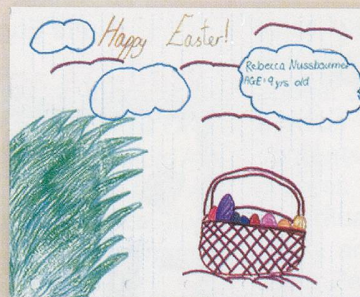 Happy Easter!
Rebecca Nussbaumer
AGE: 9 yrs old